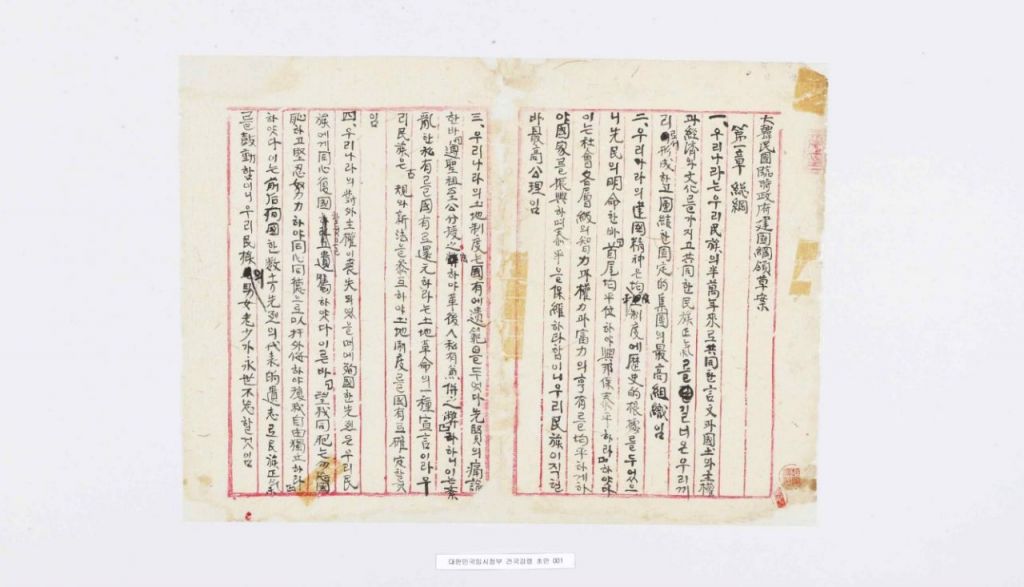 大韓民國臨時政府建國綱領草案
第一章 總綱
一、우리나라는 우리民族의 半萬年來로 共同한 言文과 國土와 主權
과 經濟와 文化를 가지고 共同한 民族正氣를 길너온 우리끼
리 形成하고 團結한 固定的 集團의 最高組織임
二、우리나라의 建國精神은 三均制度에 歷史的 根據를 두었으
니 先民의 明命한바「首尾均平位하야 興邦保泰平하리라」하얏다
이는 社會各層級의 智力과 權力과 富力의 享有를 均平하게하
야 國家를 振興하며 泰平을 保維하라함이니 우리民族이 지킬
바 最高公理임
三、우리나라의 土地制度는 國有에 遺範을 두엇다 先賢의 痛論
한바「遵聖祖至公分授之法하야 革後人私有兼併之弊」라하니 이는 紊
亂한 私有를 國有로 還元하라는 土地革命의 一種宣言이라 우
리民族은 古規와 新法을 參互하야 土地制度를 國有로 確定할것
임
四、우리나라의 對外主權이 喪失되엿을때에 殉國한 先烈은 우리民
族에게 同心復國할것을 遺囑하얏다 이른바「望我同胞는 勿忘國
恥하고 堅忍努力하야 同心同德으로 以扞外侮하야 復我自由獨立하라」
하얏다 이는 前后殉國한 數十萬先烈의 代表的遺志로 民族正氣
를 鼓動함이니 우리民族의 男女老少가 永世不忘할것임
대한민국임시정부 건국강령 초안 001